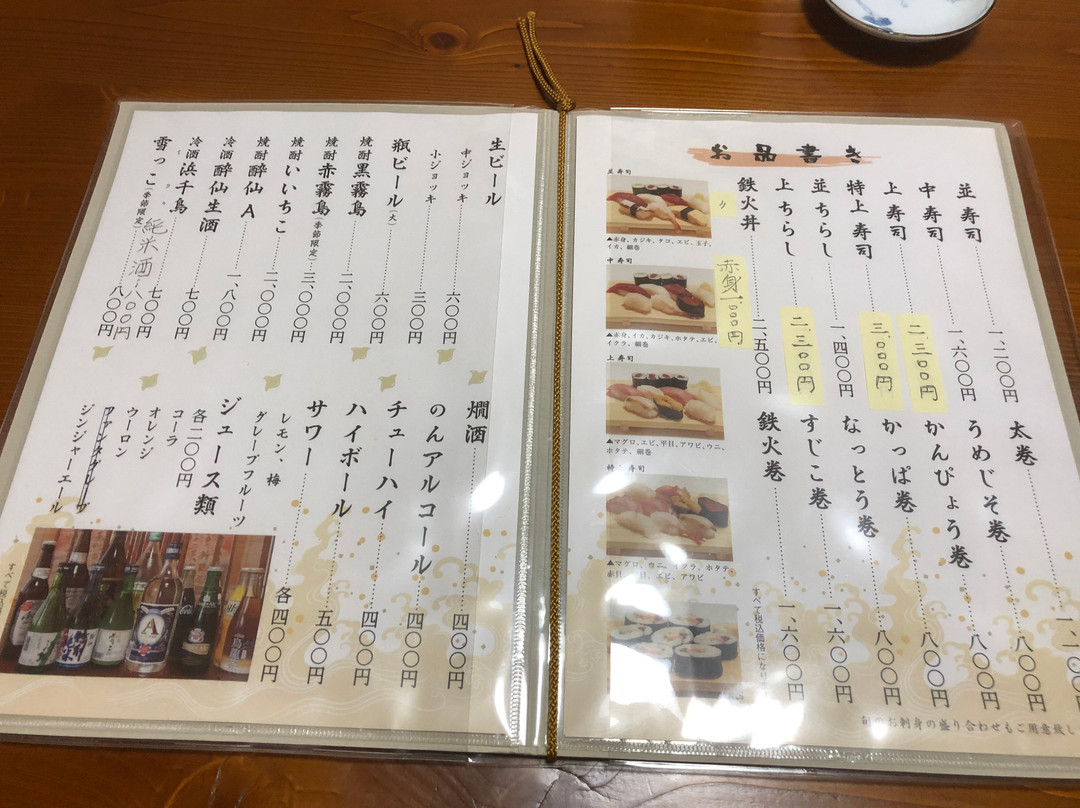 お品書き
並寿司 一、二〇〇円
中寿司 一、六〇〇円
上寿司 二、三〇〇円
特上寿司 三、〇〇〇円
並ちらし 一、四〇〇円
上ちらし 二、三〇〇円
鉄火丼 二、五〇〇円
赤身 一、〇〇〇円
太巻
うめじそ巻 八〇〇円
かんぴょう巻 八〇〇円
かっぱ巻 八〇〇円
なっとう巻 八〇〇円
すじこ巻 一、六〇〇円
鉄火巻 一、六〇〇円
すべて税込価格になり
お刺身の盛り合わせもご用意致し
並寿司
▲赤身、カジキ、タコ、エビ、玉子、
イカ、細巻
中寿司
▲赤身、イカ、カジキ、ホタテ、エビ、
イクラ、細巻
上寿司
▲マグロ、エビ、平目、アワビ、ウニ、
ホタテ、細巻
特 寿司
▲マグロ、ウニ、イクラ、ホタテ、
赤貝、 目、エビ、アワビ
生ビール
中ジョッキ 六〇〇円
小ジョッキ 三〇〇円
瓶ビール(大) 六〇〇円
焼酎黒霧島 二、〇〇〇円
焼酎赤霧島(季節限定) 三、〇〇〇円
焼酎いいちこ 二、〇〇〇円
焼酎酔仙A 一、八〇〇円
冷酒酔仙生酒 七〇〇円
冷酒浜千鳥 七〇〇円
雪っこ(季節限定) 八〇〇円
純米酒
燗酒 四〇〇円
のんアルコール 四〇〇円
チューハイ 四〇〇円
ハイボール 五〇〇円
サワー 各四〇〇円
レモン、梅
グレープフルーツ
ジュース類
各二〇〇円
コーラ
オレンジ
ウーロン
ジンジャーエール
すべて税込
A